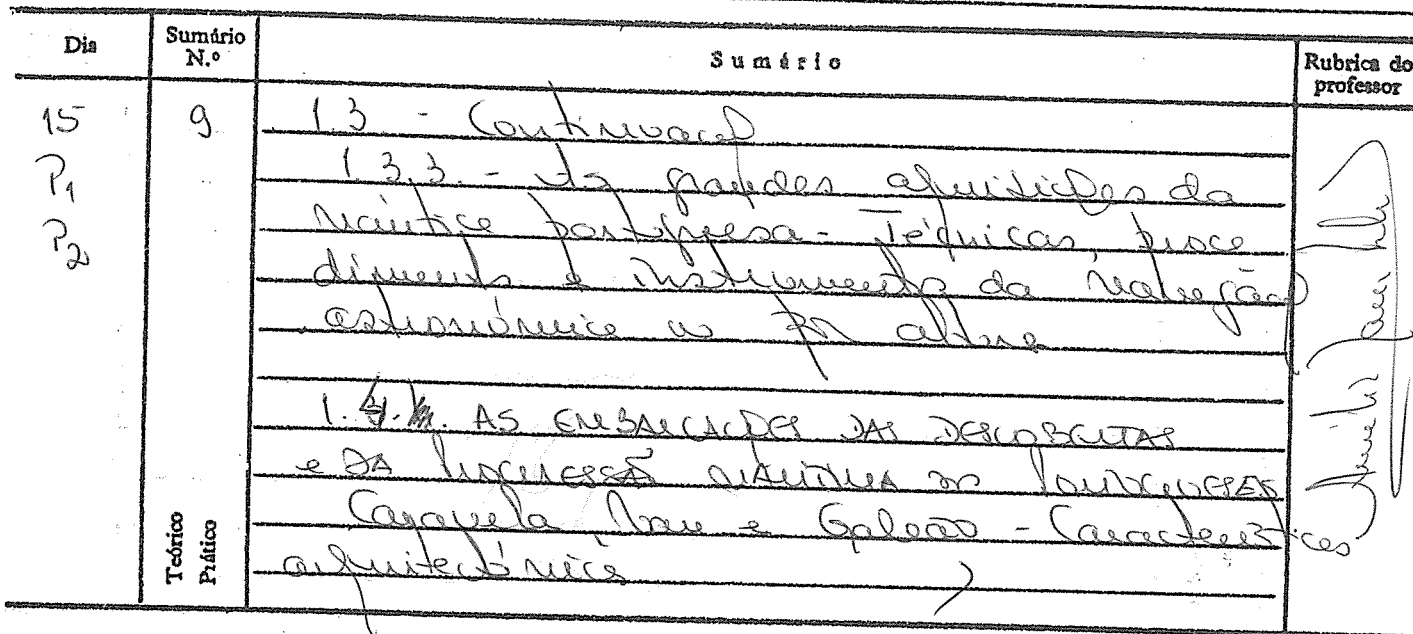 Dia Sumário N.º Sumário Rubrica do professor
15 9 1.3 - Continuação
P1 1.3.3. - As grandes aquisições da
P2 náutica portuguesa - Técnicas, proce
dimentos e instrumentos da navegação
astronómica
1.4. AS EMBARCAÇÕES DAS DESCOBERTAS
e DA MARÍTIMA PORTUGUESES
Caravela Nau e Galeão - Características
arquitectónicas
Teórico
Prático